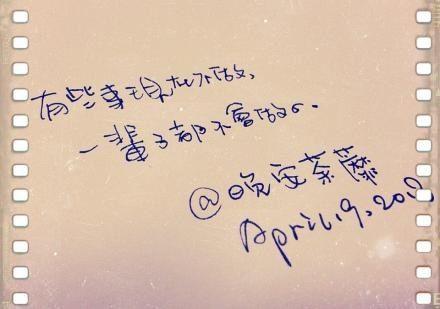 有些事現在不做、
一輩子都不會做了.
@晚安茶藤
April.19.201